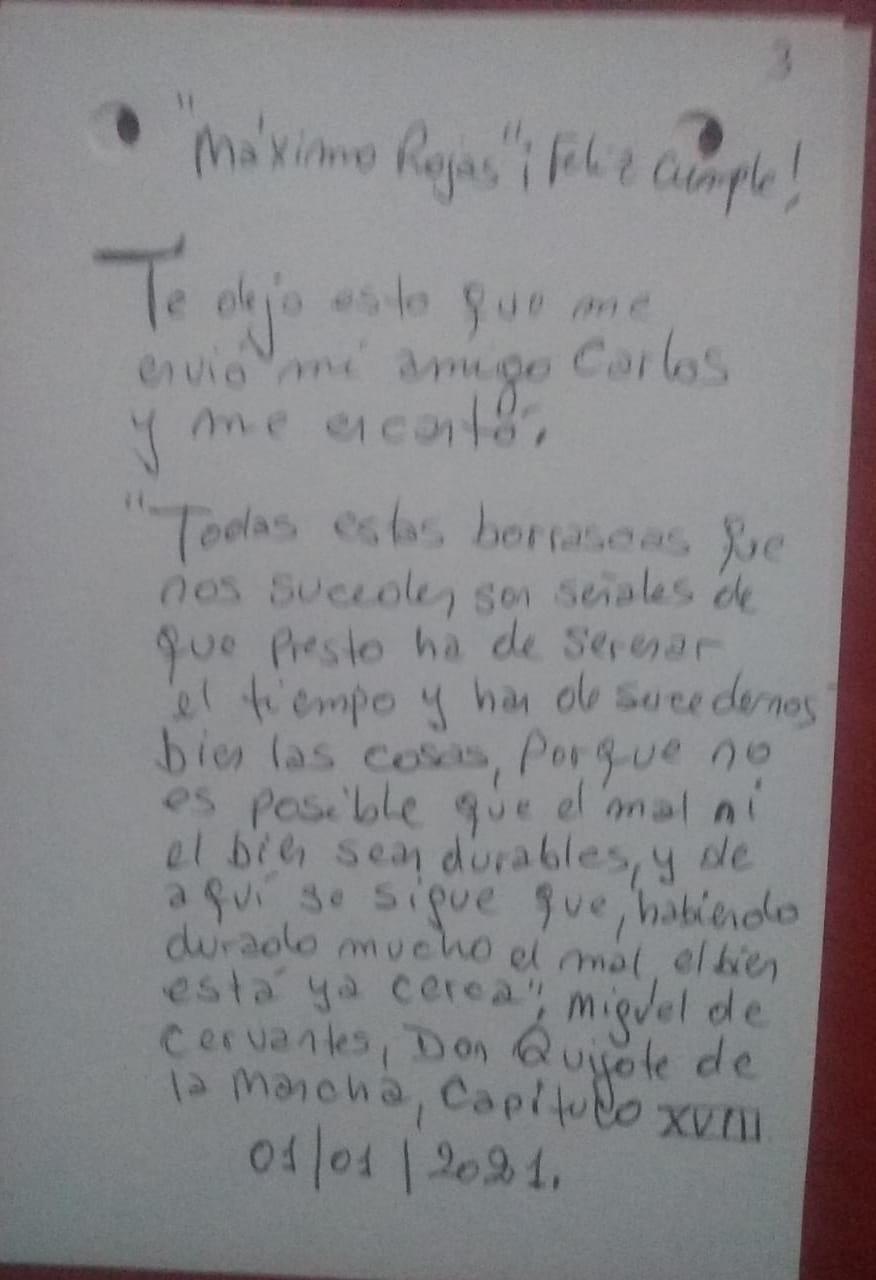 3
"Máximo Rojas" ¡Feliz Cumple!
Te dejo esto que me
envió mi amigo Carlos
y me encantó.
"Todas estas borrascas que
nos suceden son señales de
que Presto ha de serenar
el tiempo y han de sucedernos
bien las cosas, Porque no
es posible que el mal ni
el bien sean durables, y de
aquí se sigue que, habiendo
durado mucho el mal, el bien
está ya cerca", Miguel de
Cervantes, Don Quijote de
la Mancha, Capítulo XVIII
01/01/2021.